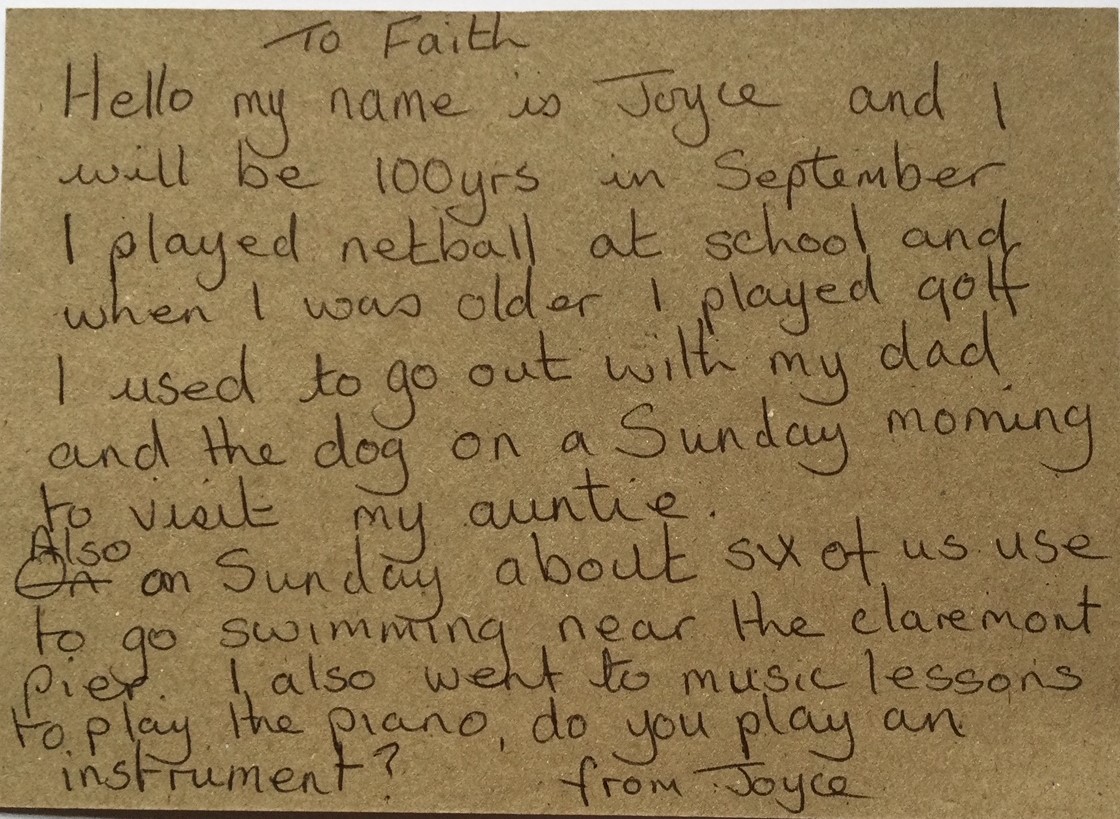 To Faith
Hello my name is Joyce and I
will be 100yrs in September
I played netball at school and
when I was older I played golf
I used to go out with my dad
and the dog on a Sunday morning
to visit my auntie.
Also
On on Sunday about six of us use
to go swimming near the claremont
pier. I also went to music lessons
to play the piano, do you play an
instrument? from Joyce